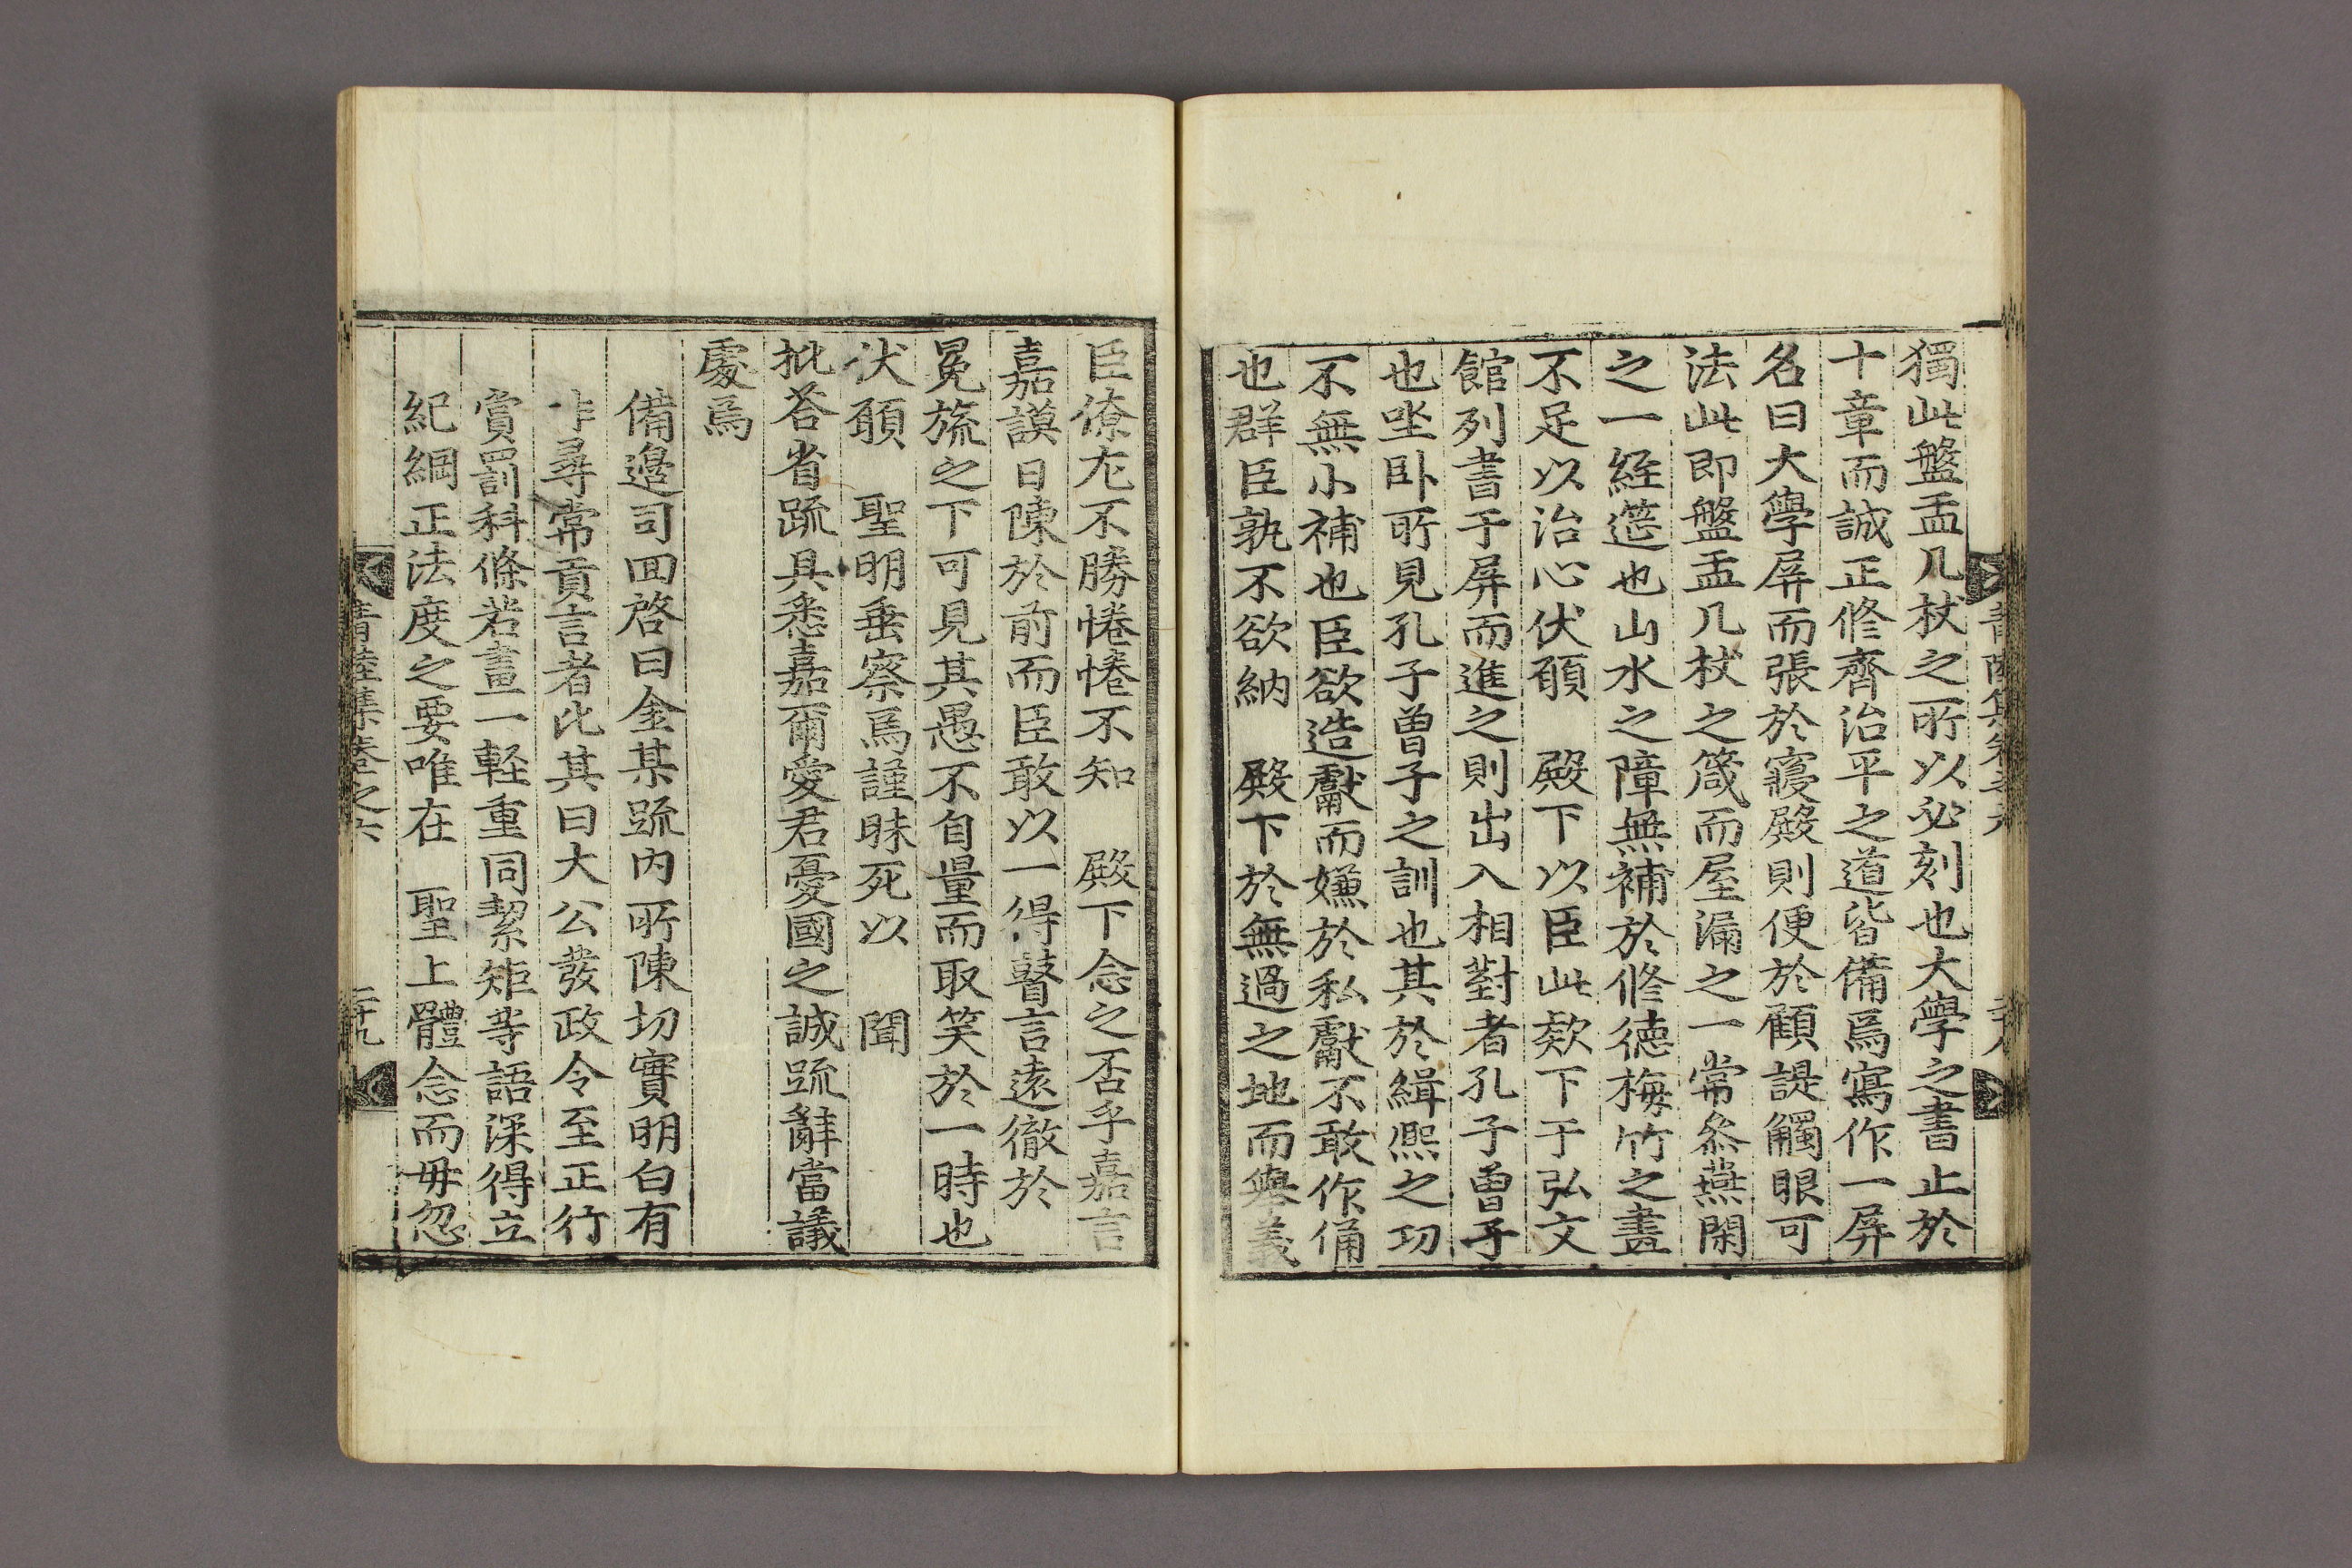 獨此盤盂几杖之所以必刻也大學之書止於
十章而誠正修齊治平之道皆備焉寫作一屏
名曰大學屏而張於寢殿則便於顧諟觸眼可
法此即盤盂几杖之箴而屋漏之一常叅燕閑
之一經筵也山水之障無補於修德梅竹之畫
不足以治心伏願　殿下以臣此欵下于弘文
館列書于屏而進之則出入相對者孔子曾子
也坐卧所見孔子曾子之訓也其於緝熙之功
不無小補也臣欲造獻而嫌於私獻不敢作俑
也群臣孰不欲納　殿下於無過之地而與義
臣僚尤不勝惓惓不知　殿下念之否乎嘉言
嘉謨日陳於前而臣敢以一得瞽言遠徹於
冕旒之下可見其愚不自量而取笑於一時也
伏願　聖明垂察焉謹昧死以　聞
批荅省䟽具悉嘉爾愛君憂國之誠䟽辭當議
處焉
備邊司回啓曰金某䟽內所陳切實明白有
非尋常貢言者比其曰大公發政令至正行
賞罰科條若畫一輕重同絜矩等語深得立
紀綱正法度之要唯在　聖上體念而毋忽
青陸集卷之六　二十九